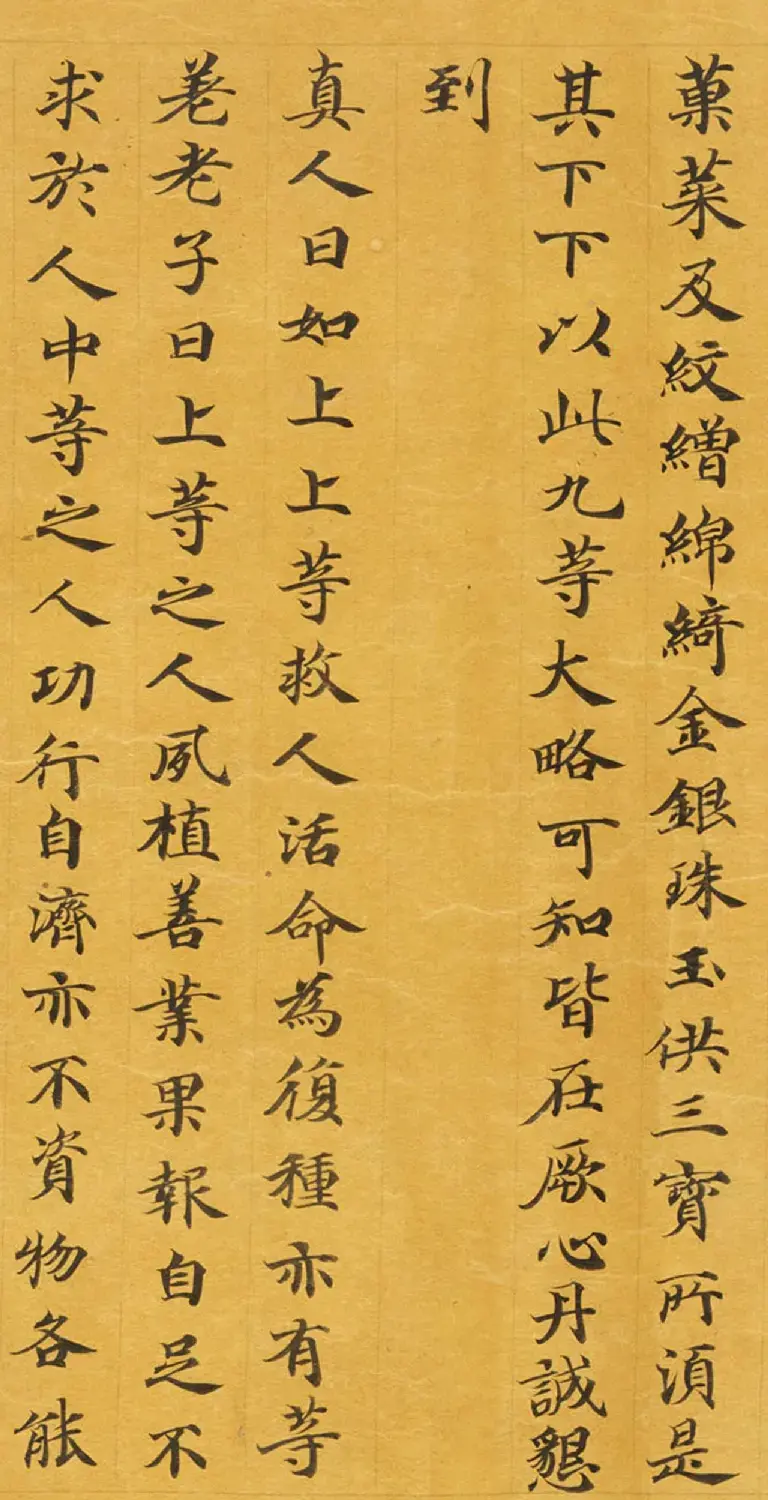 菓菜及紋繒綿綺金銀珠玉供三寳所湏是
其下下以此九等大略可知皆在厥心丹誠懇
到
真人曰如上上等救人活命為復種亦有等
差老子曰上等之人夙植善業果報自足不
求於人中等之人功行自濟亦不資物各能